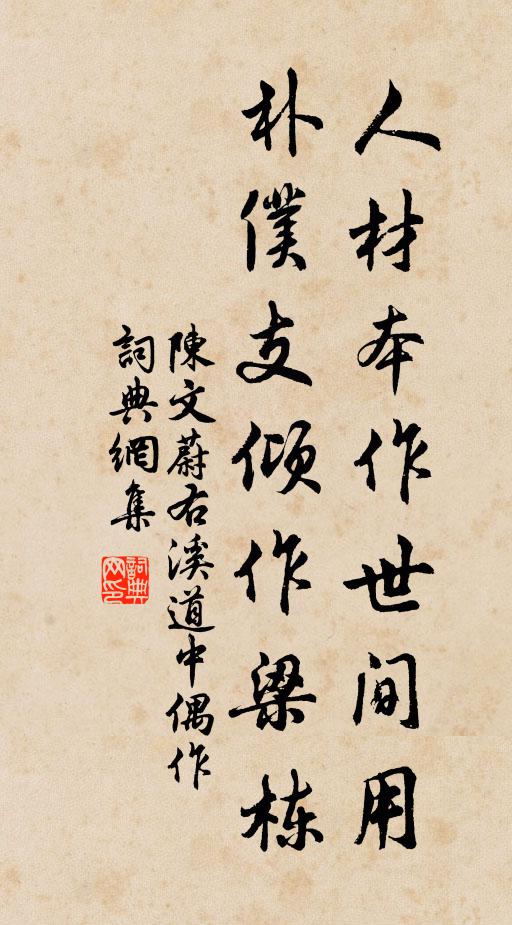 人材本作世间用
朴僕支倾作梁栋
陳文蔚右溪道中偶作
詞典網集
詞典网印